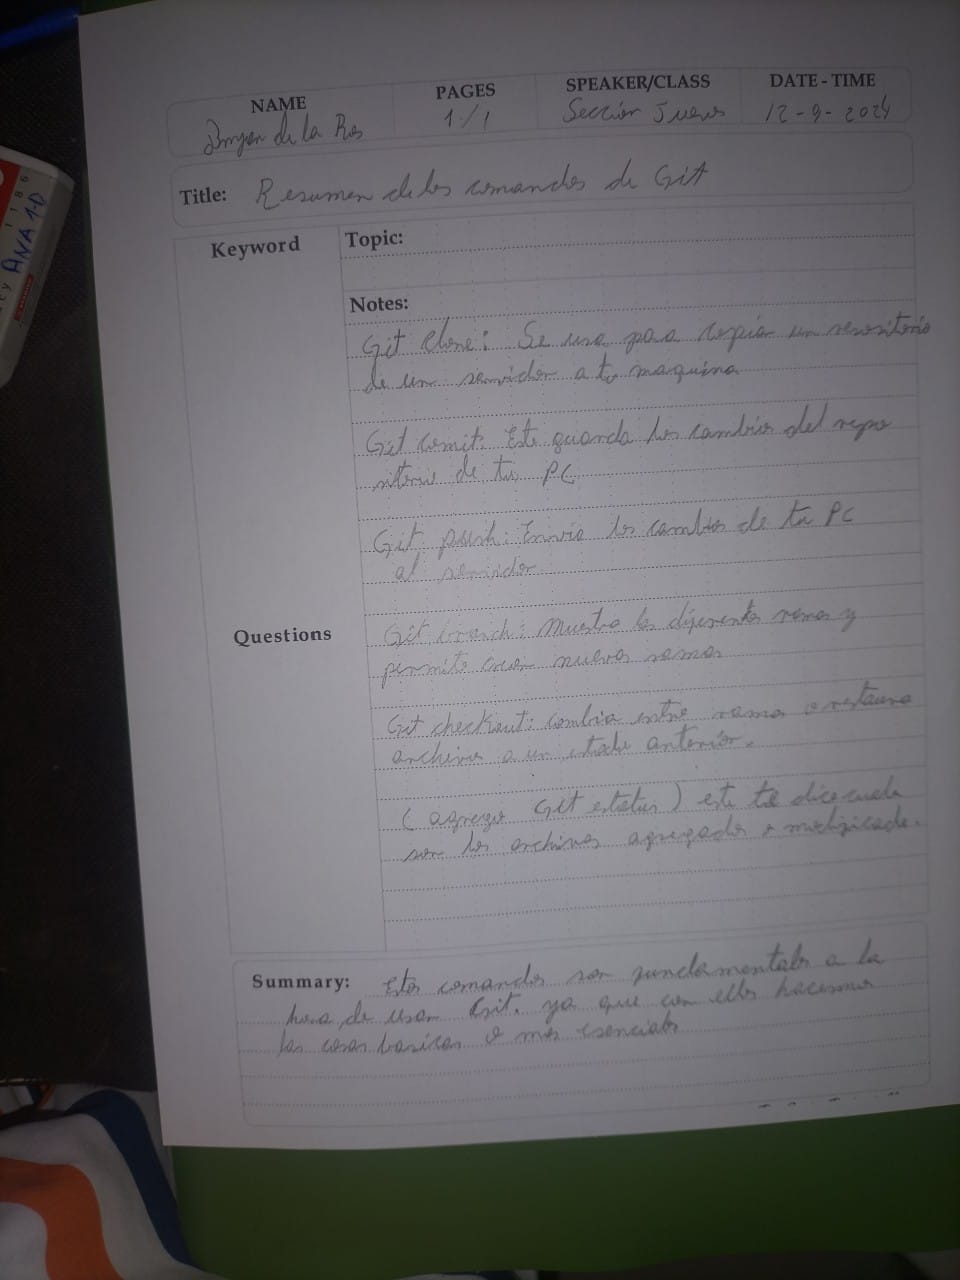 NAME PAGES SPEAKER/CLASS DATE - TIME
de la Ros 1/1 Sección Jueves 12-9-2024
Title: Resumen de los comandos de Git
Keyword
Topic:
Notes:
Git Clone: Se usa para copiar un repositorio
de un servidor a tu maquina
Git comit: Este guarda los cambios del repo
sitorio de tu PC
Git push: Envia los cambios de tu PC
al servidor
Questions
Git branch: Muestra las diferentes ramas y
permite crear nuevas ramas
Git checkout: cambia entre ramas o restaura
archivos a un estado anterior.
(agrego Git estatus) este te dice cuale
son los archivos agregados o modificado.
Summary: Estos comandos son fundamentales a la
hora de usar Git. ya que con ellos hacemos
las cosas basicas o mas esenciales
ANA 1-D
1186